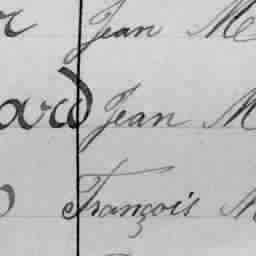 r Jean M
ard Jean M
François M